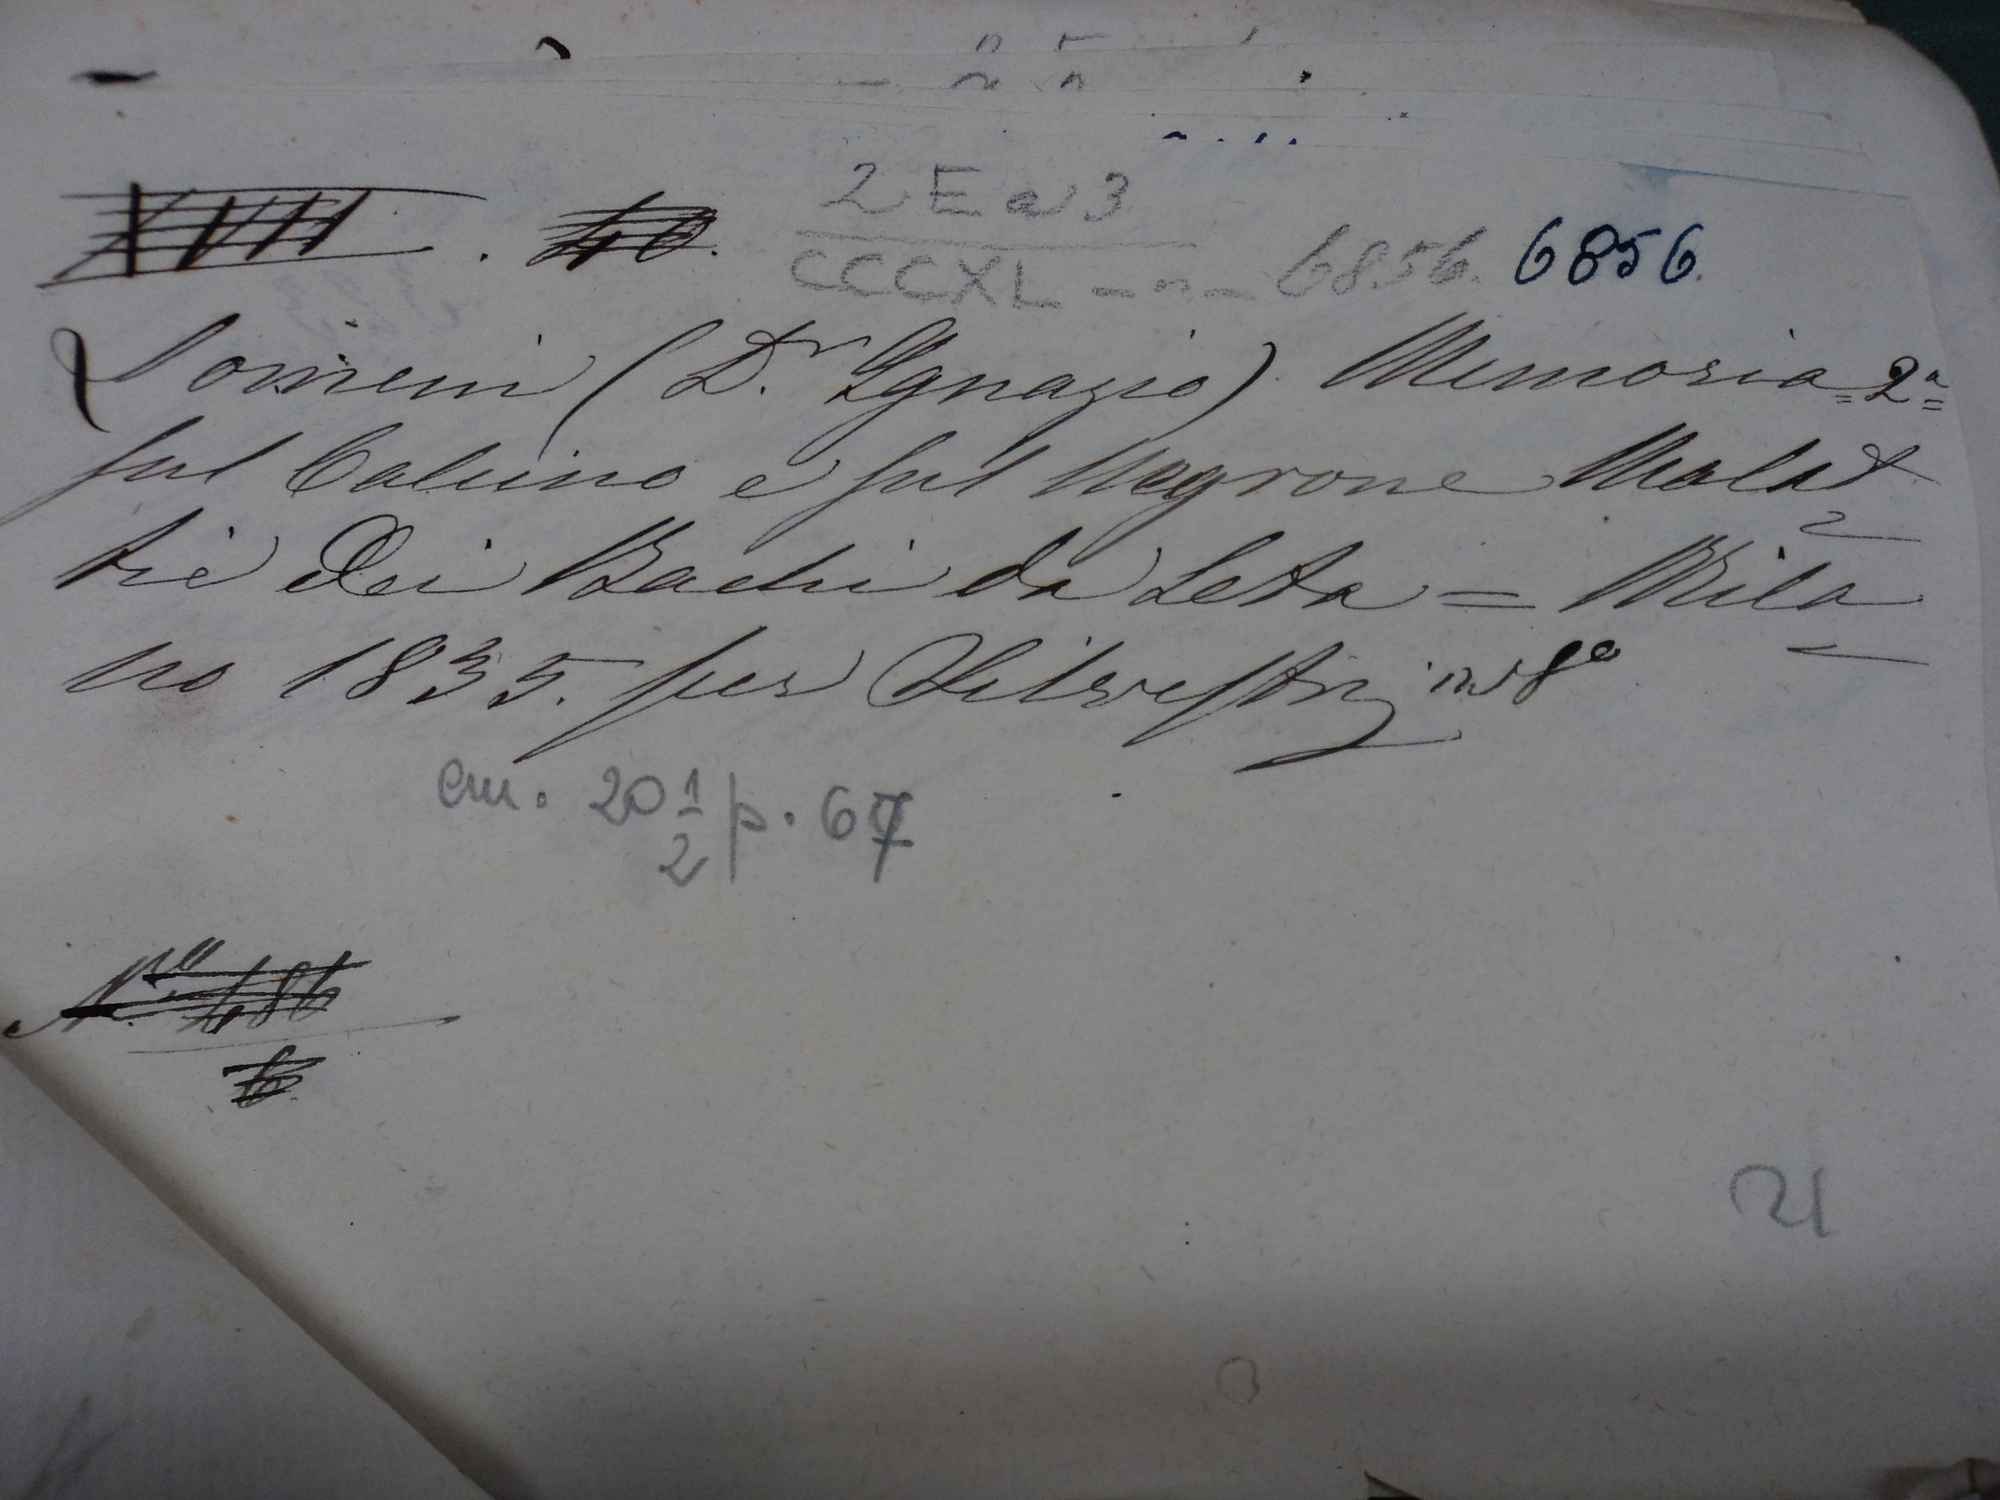 XVII . 40. 2 E a 3
CCCXL - n - 6856. 6856.
Lomeni (D.r Ignazio) Memoria 2a
sul Calcino e sul Negrone Malat
tie dei Bachi da Seta = Mila
no 1835. per Silvestri in 8o
cm. 20 1/2 p. 67
N.o 486
6.
21